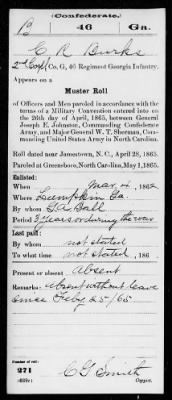 (Confederate.)
B 46 Ga.
C R Burks
2d Corpl Co. G, 46 Regiment Georgia Infantry.
Appears on a
Muster Roll
of Officers and Men paroled in accordance with the
terms of a Military Convention entered into on
the 26th day of April, 1865, between General
Joseph E. Johnston, Commanding Confederate
Army, and Major General W. T. Sherman, Com-
manding United States Army in North Carolina.
Roll dated near Jamestown, N. C., April 28, 1865.
Paroled at Greensboro, North Carolina, May 1, 1865.
Enlisted:
When Mar 4, 1862
Where Lumpkin Ga.
By whom Ball
Period 3 Years or during the war
Last paid:
By whom not stated
To what time not stated, 186 .
Present or absent Absent
Remarks: Absent without leave
since Feby 25/65
Number of roll:
271
C G Smith
Copyist.